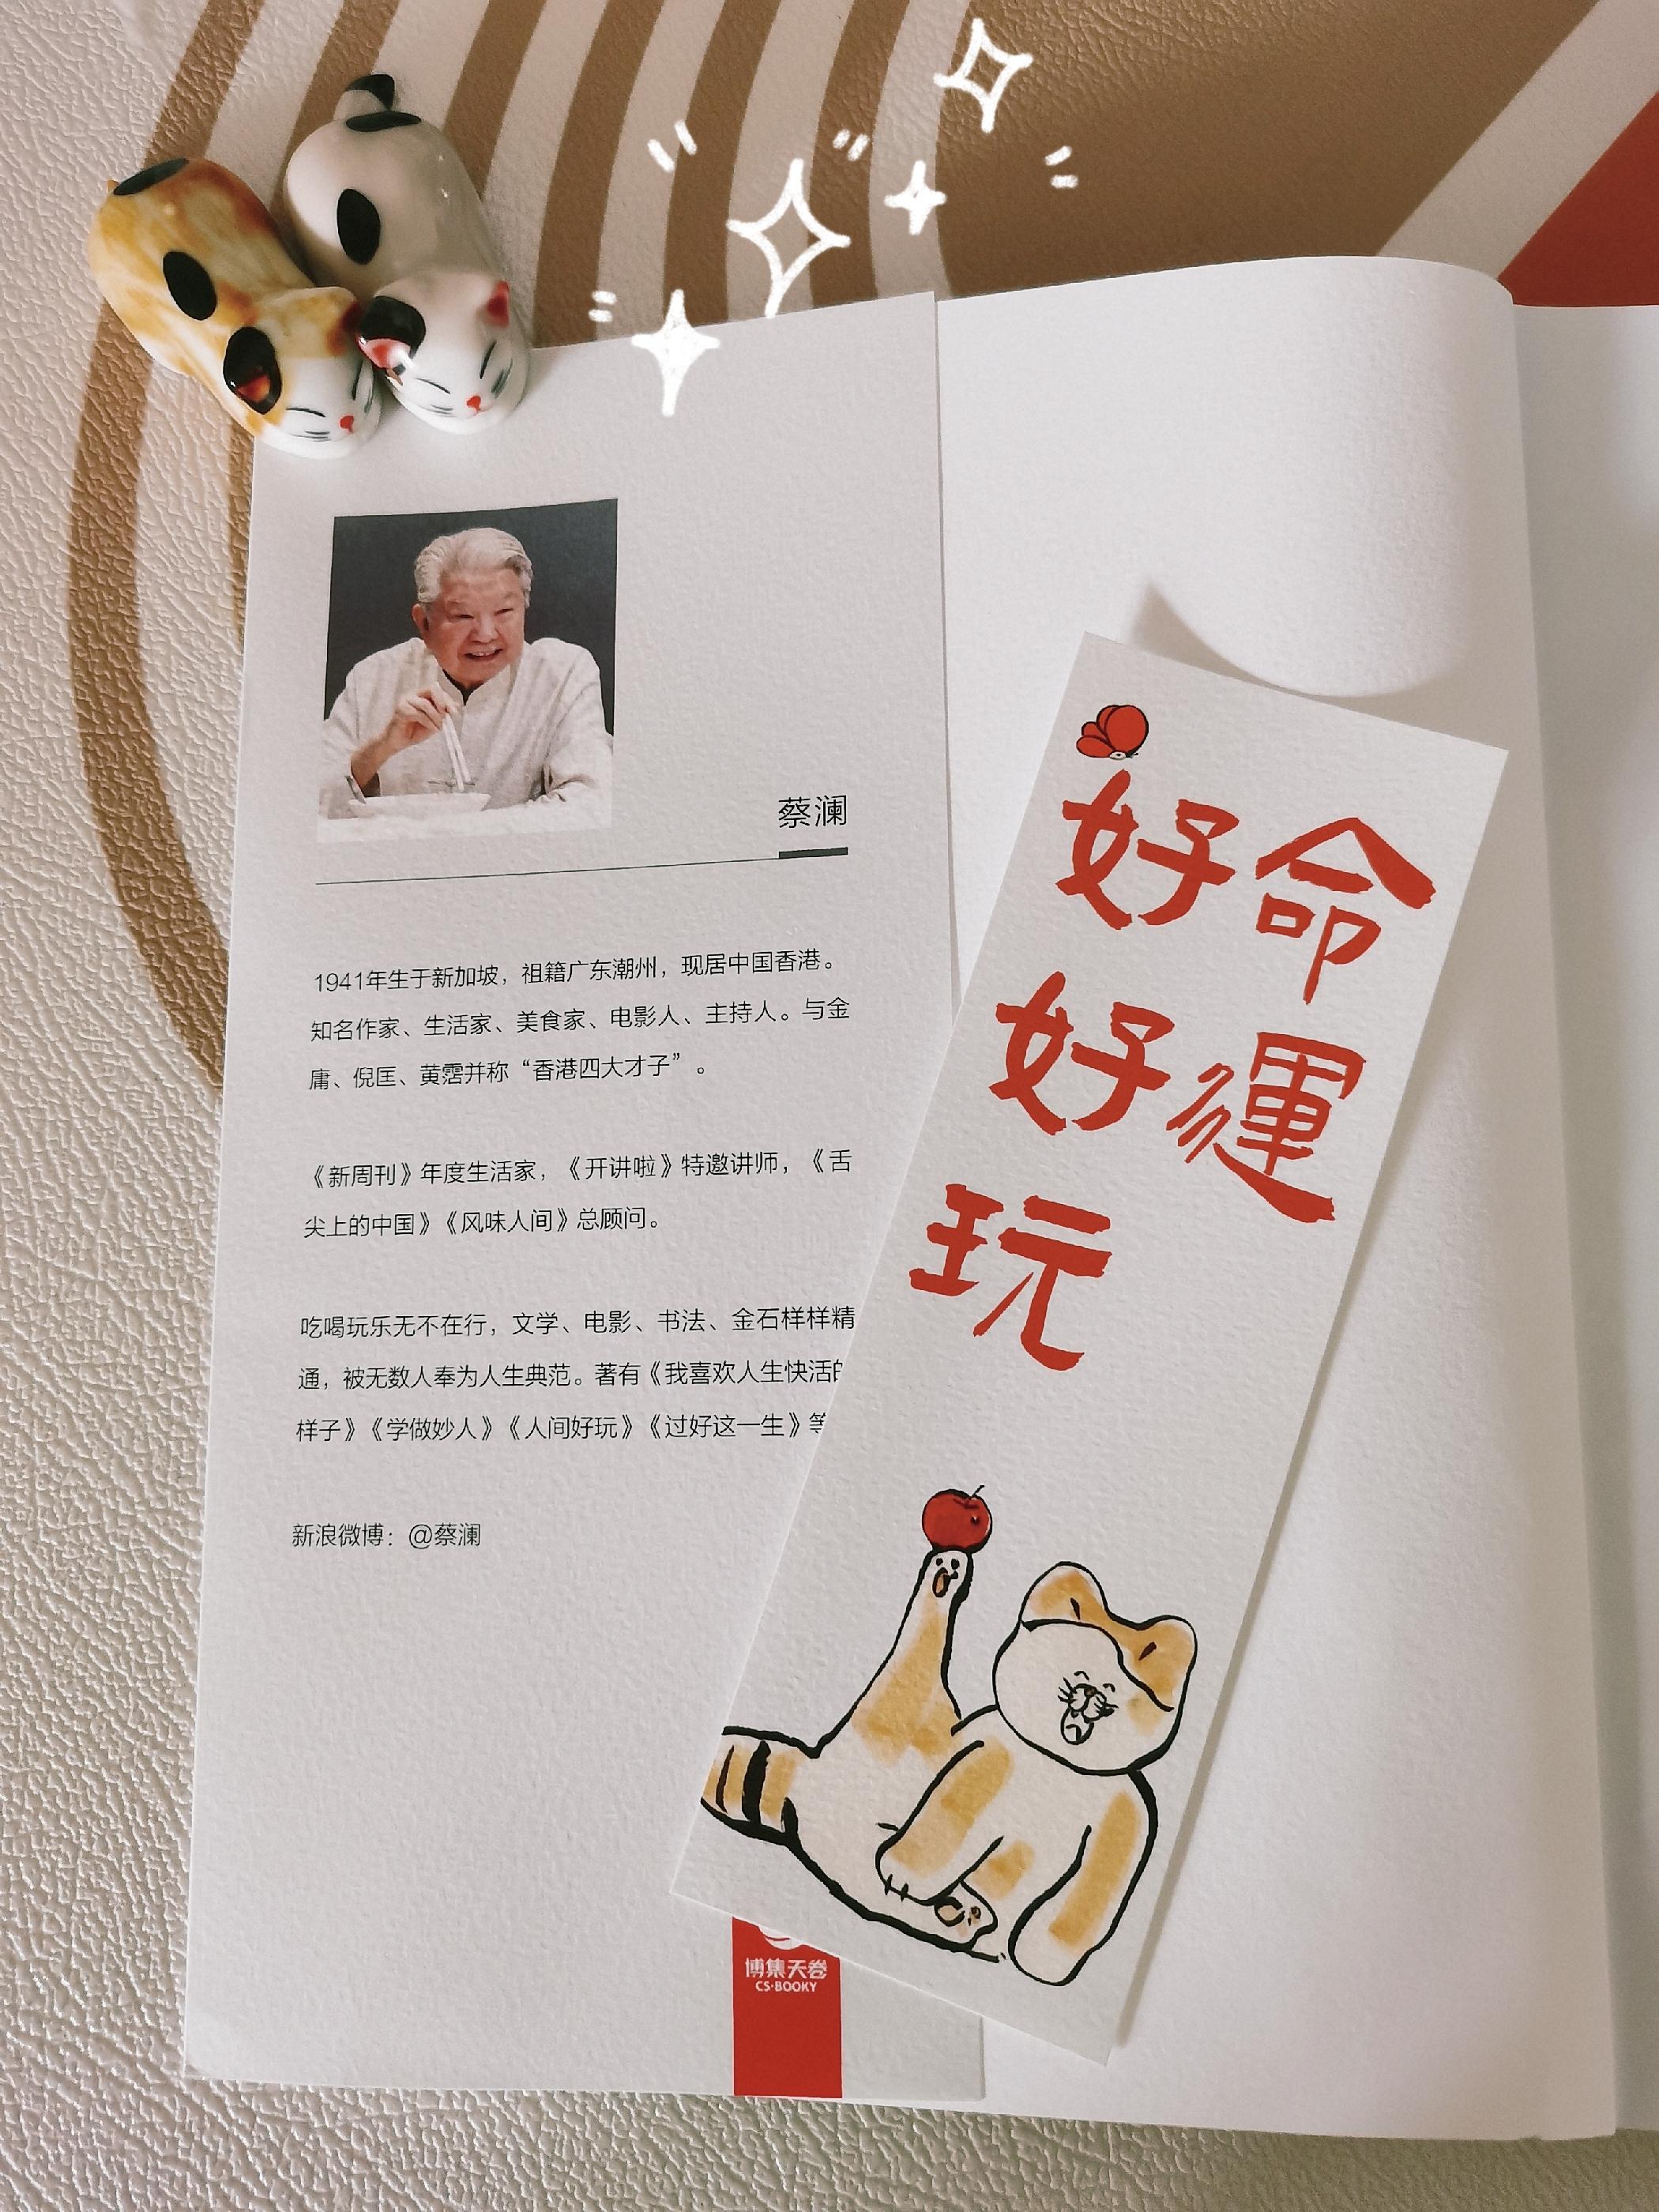 蔡澜
1941年生于新加坡，祖籍广东潮州，现居中国香港。
知名作家、生活家、美食家、电影人、主持人。与金
庸、倪匡、黄霑并称“香港四大才子”。
《新周刊》年度生活家，《开讲啦》特邀讲师，《舌
尖上的中国》《风味人间》总顾问。
吃喝玩乐无不在行，文学、电影、书法、金石样样精
通，被无数人奉为人生典范。著有《我喜欢人生快活的
样子》《学做妙人》《人间好玩》《过好这一生》等
新浪微博：@蔡澜
好命
好運
玩
博集天卷
CS·BOOKY